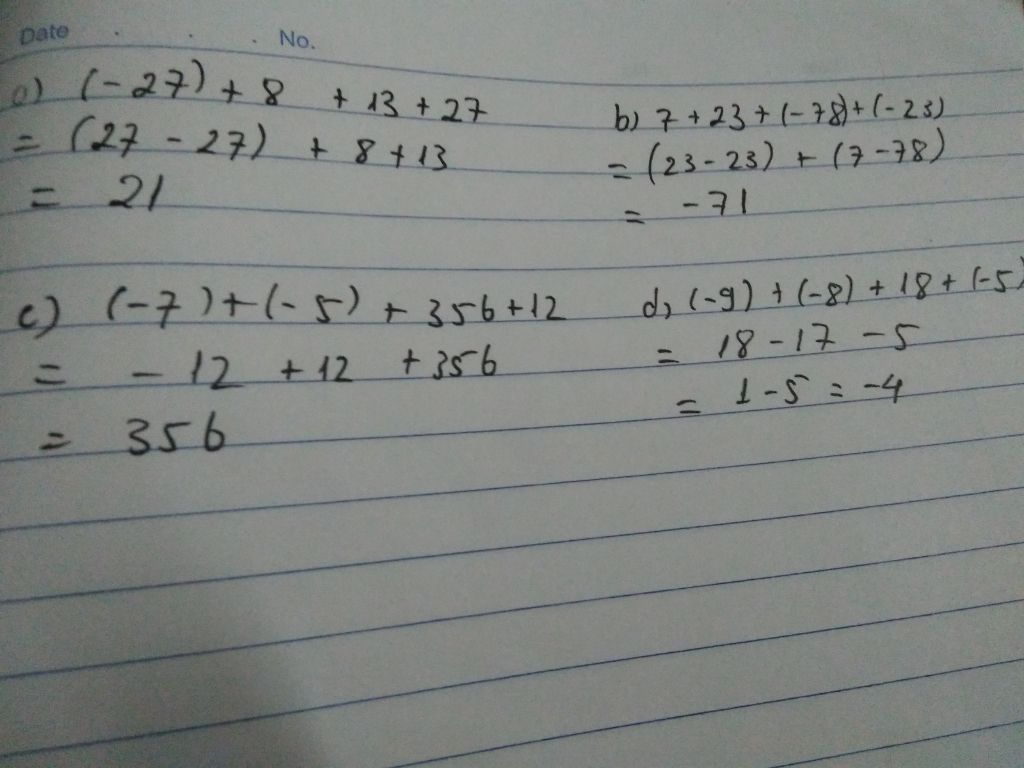 Date No.
a) (-27) + 8 + 13 + 27
= (27 - 27) + 8 + 13
= 21
b) 7 + 23 + (-78) + (-23)
= (23 - 23) + (7 - 78)
= -71
c) (-7) + (-5) + 356 + 12
= - 12 + 12 + 356
= 356
d, (-9) + (-8) + 18 + (-5)
= 18 - 17 - 5
= 1 - 5 = -4